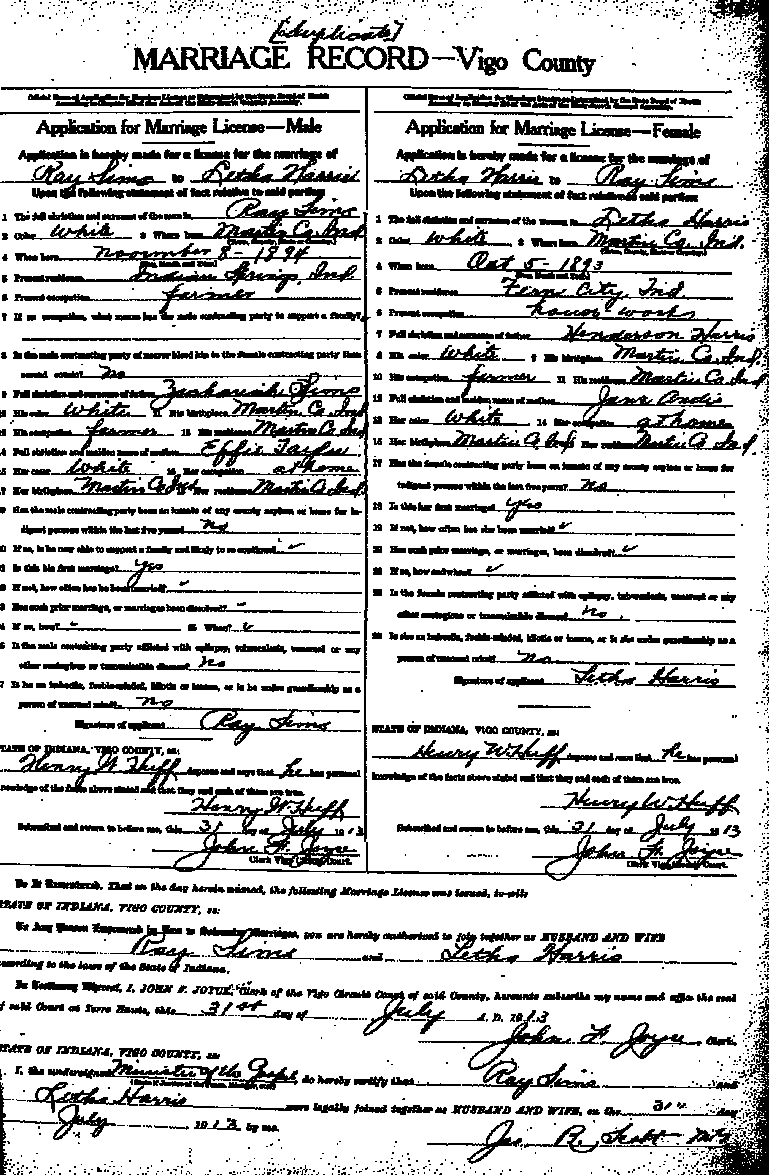 [duplicate]
MARRIAGE RECORD—Vigo County
Application for Marriage License—Male
Application is hereby made for a license for the marriage of
Ray Sims to Letha Harris
Upon the following statement of fact relative to said parties
1 The full christian and surname of the man is Ray Sims
2 Color White 3 Where born Martin Co. Ind
4 When born November 8 - 1894
5 Present residence Indian Springs, Ind
6 Present occupation farmer
7 If no occupation, what means has the male contracting party to support a family?
8 Is the male contracting party of nearer blood kin to the female contracting party than
second cousin? No
9 Full christian and surname of father Zachariah Sims
His color White His birthplace Martin Co. Ind
His occupation farmer His residence Martin Co Ind
Full christian and maiden name of mother Effie
Her color White Her occupation at home
Her birthplace Martin Co Ind Her residence Martin Co Ind
Has the male contracting party been an inmate of any county asylum or home for in-
digent persons within the last five years? No
If so, is he now able to support a family and likely to so continue? ✓
Is this his first marriage? Yes
If not, how often has he been married? ✓
Has such prior marriage, or marriages been dissolved? ✓
If so, how? ✓ When? ✓
Is the male contracting party afflicted with epilepsy, tuberculosis, venereal or any
other contagious or transmissible disease? No
Is he an imbecile, feeble-minded, idiotic or insane, or is he under guardianship as a
person of unsound mind? No
Signature of applicant Ray Sims
STATE OF INDIANA, VIGO COUNTY, ss:
Henry W. Huff deposes and says that he has personal
knowledge of the facts above stated and that they and each of them are true.
Henry W. Huff
Subscribed and sworn to before me, this 31 day of July 1913
John F. Joyce
Clerk Vigo Circuit Court.
Application for Marriage License—Female
Application is hereby made for a license for the marriage of
Letha Harris to Ray Sims
Upon the following statement of fact relative to said parties
1 The full christian and surname of the woman is Letha Harris
2 Color White 3 Where born Martin Co. Ind.
4 When born Oct 5 - 1893
5 Present residence Fern City, Ind
6 Present occupation house work
7 Full christian and surname of father Henderson Harris
8 His color White 9 His birthplace Martin Co. Ind.
10 His occupation farmer 11 His residence Martin Co Ind
12 Full christian and maiden name of mother Jane
13 Her color White 14 Her occupation at home
15 Her birthplace Martin Co Ind Her residence Martin Co Ind.
17 Has the female contracting party been an inmate of any county asylum or home for
indigent persons within the last five years? No
18 Is this her first marriage? Yes
19 If not, how often has she been married? ✓
Has such prior marriage, or marriages, been dissolved? ✓
If so, how and when? ✓
Is the female contracting party afflicted with epilepsy, tuberculosis, venereal or any
other contagious or transmissible disease? No.
Is she an imbecile, feeble-minded, idiotic or insane, or is she under guardianship as a
person of unsound mind? No
Signature of applicant Letha Harris
STATE OF INDIANA, VIGO COUNTY, ss:
Henry W. Huff deposes and says that he has personal
knowledge of the facts above stated and that they and each of them are true.
Henry W. Huff
Subscribed and sworn to before me, this 31 day of July 1913
John F. Joyce
Clerk Vigo Circuit Court.
Be It Remembered, That on the day herein named, the following Marriage License was issued, to-wit:
STATE OF INDIANA, VIGO COUNTY, ss:
To Any Person Empowered by Law to Solemnize Marriages, you are hereby authorized to join together as HUSBAND AND WIFE
Ray Sims and Letha Harris
according to the laws of the State of Indiana.
In Testimony Whereof, I, JOHN F. JOYCE, Clerk of the Vigo Circuit Court of said County, hereunto subscribe my name and affix the seal
of said Court at Terre Haute, this 31st day of July A. D. 1913
John F. Joyce, Clerk.
STATE OF INDIANA, VIGO COUNTY, ss:
I, the undersigned Minister of the Gospel, do hereby certify that Ray Sims and
Letha Harris were legally joined together as HUSBAND AND WIFE, on the 31st day
July 1913 by me.
Jas R. Scott